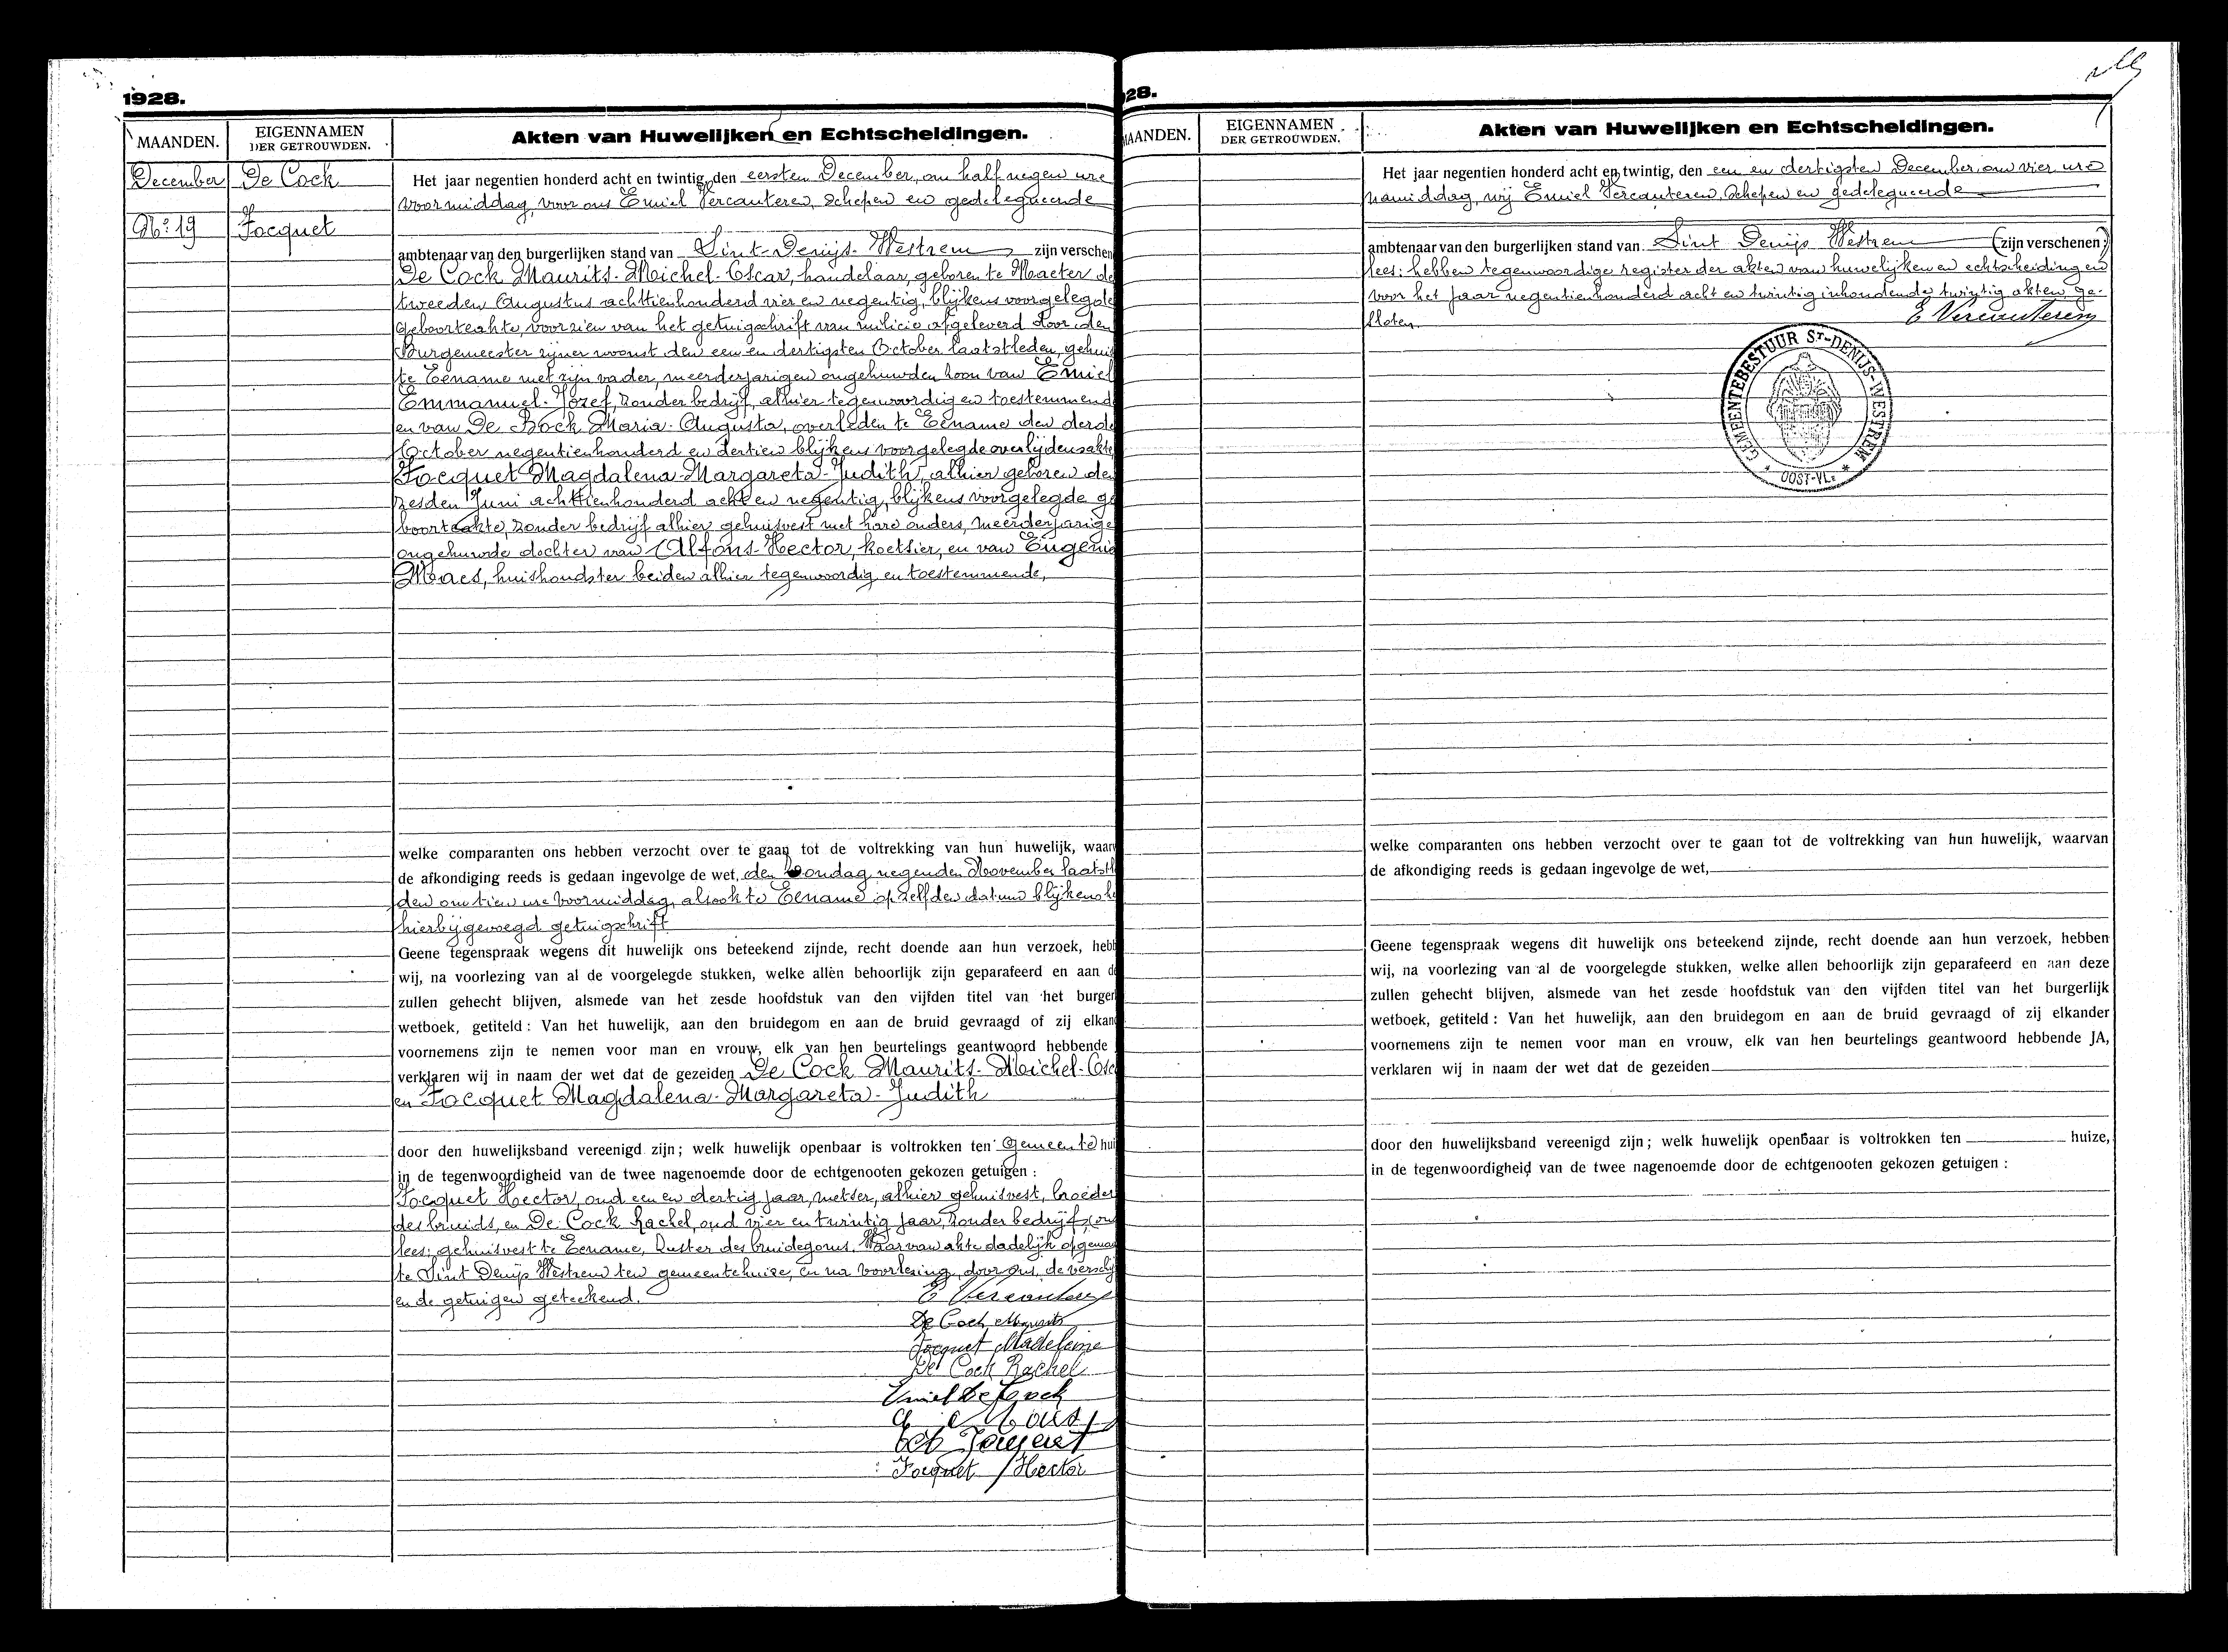 1928.
MAANDEN.
EIGENNAMEN
DER GETROUWDEN.
Akten van Huwelijken en Echtscheidingen.
December
De Cock
Nº: 19
Jocquet
Het jaar negentien honderd acht en twintig, den eersten December, om half negen ure
voormiddag, voor ons Emiel Vercauteren, schepen en gedelegueerde
ambtenaar van den burgerlijken stand van Sint-Denijs-Westrem zijn verschen
De Cock Maurits-Michel-Oscar, handelaar, geboren te Maeter de
tweeden Augustus achttienhonderd vier en negentig, blijkens voorgelegde
geboorteakte, voorzien van het getuigschrift van milicie afgeleverd door den
Burgemeester zijner woonst den een en dertigsten October laatstleden, gehuis
te Eename met zijn vader, meerderjarigen ongehuwden zoon van Emiel
Emmanuel-Jozef, zonder bedrijf, alhier tegenwoordig en toestemmend
en van De Bock Maria-Augusta, overleden te Eename den derde
October negentienhonderd en dertien blijkens voorgelegde overlijdensakte
Jocquet Magdalena-Margareta-Judith, alhier geboren de
zesden Juni achttienhonderd acht en negentig, blijkens voorgelegde ge
boorteakte, zonder bedrijf alhier gehuisvest met hare ouders, meerderjarige
ongehuwde dochter van Alfons-Hector, koetsier, en van Eugenie
Maes, huishoudster beiden alhier tegenwoordig en toestemmende,
welke comparanten ons hebben verzocht over te gaan tot de voltrekking van hun huwelijk, waar
de afkondiging reeds is gedaan ingevolge de wet, den zondag negenden November laatstl
den om tien ure voormiddag, alsook te Eename op zelfden datum blijkens
hierbijgevoegd getuigschrift
Geene tegenspraak wegens dit huwelijk ons beteekend zijnde, recht doende aan hun verzoek, hebb
wij, na voorlezing van al de voorgelegde stukken, welke allen behoorlijk zijn geparafeerd en aan d
zullen gehecht blijven, alsmede van het zesde hoofdstuk van den vijfden titel van het burger
wetboek, getiteld: Van het huwelijk, aan den bruidegom en aan de bruid gevraagd of zij elkan
voornemens zijn te nemen voor man en vrouw, elk van hen beurtelings geantwoord hebbende
verklaren wij in naam der wet dat de gezeiden De Cock Maurits-Michel-Osc
en Jocquet Magdalena-Margareta-Judith
door den huwelijksband vereenigd zijn; welk huwelijk openbaar is voltrokken ten Gemeente hui
in de tegenwoordigheid van de twee nagenoemde door de echtgenooten gekozen getuigen:
Jocquet Hector, oud een en dertig jaar, metser, alhier gehuisvest, broeder
des bruids, en De Cock Rachel, oud vier en twintig jaar, zonder bedrijf,
lees: gehuisvest te Eename, zuster des bruidegoms. Waarvan akte dadelijk opgemaa
te Sint Denijs Westrem ten gemeentehuize, en na voorlezing door ons, de versch
en de getuigen geteekend.
E Vercauteren
De Cock Maurits
Jocquet Madeleine
De Cock Rachel
Emiel De Cock
Maes
Jocquet
Jocquet Hector
28.
MAANDEN.
EIGENNAMEN
DER GETROUWDEN.
Akten van Huwelijken en Echtscheidingen.
Het jaar negentien honderd acht en twintig, den een en dertigsten December, om vier ure
namiddag, wij Emiel Vercauteren, schepen en gedelegueerde
ambtenaar van den burgerlijken stand van Sint Denijs Westrem (zijn verschenen)
lees: hebben tegenwoordige register der akten van huwelijken en echtscheidingen
voor het jaar negentienhonderd acht en twintig inhoudende twintig akten ge-
sloten.
E Vercauteren
GEMEENTEBESTUUR ST-DENIJS-WESTREM
* OOST-VL. *
welke comparanten ons hebben verzocht over te gaan tot de voltrekking van hun huwelijk, waarvan
de afkondiging reeds is gedaan ingevolge de wet,
Geene tegenspraak wegens dit huwelijk ons beteekend zijnde, recht doende aan hun verzoek, hebben
wij, na voorlezing van al de voorgelegde stukken, welke allen behoorlijk zijn geparafeerd en aan deze
zullen gehecht blijven, alsmede van het zesde hoofdstuk van den vijfden titel van het burgerlijk
wetboek, getiteld: Van het huwelijk, aan den bruidegom en aan de bruid gevraagd of zij elkander
voornemens zijn te nemen voor man en vrouw, elk van hen beurtelings geantwoord hebbende JA,
verklaren wij in naam der wet dat de gezeiden
door den huwelijksband vereenigd zijn; welk huwelijk openbaar is voltrokken ten huize,
in de tegenwoordigheid van de twee nagenoemde door de echtgenooten gekozen getuigen: